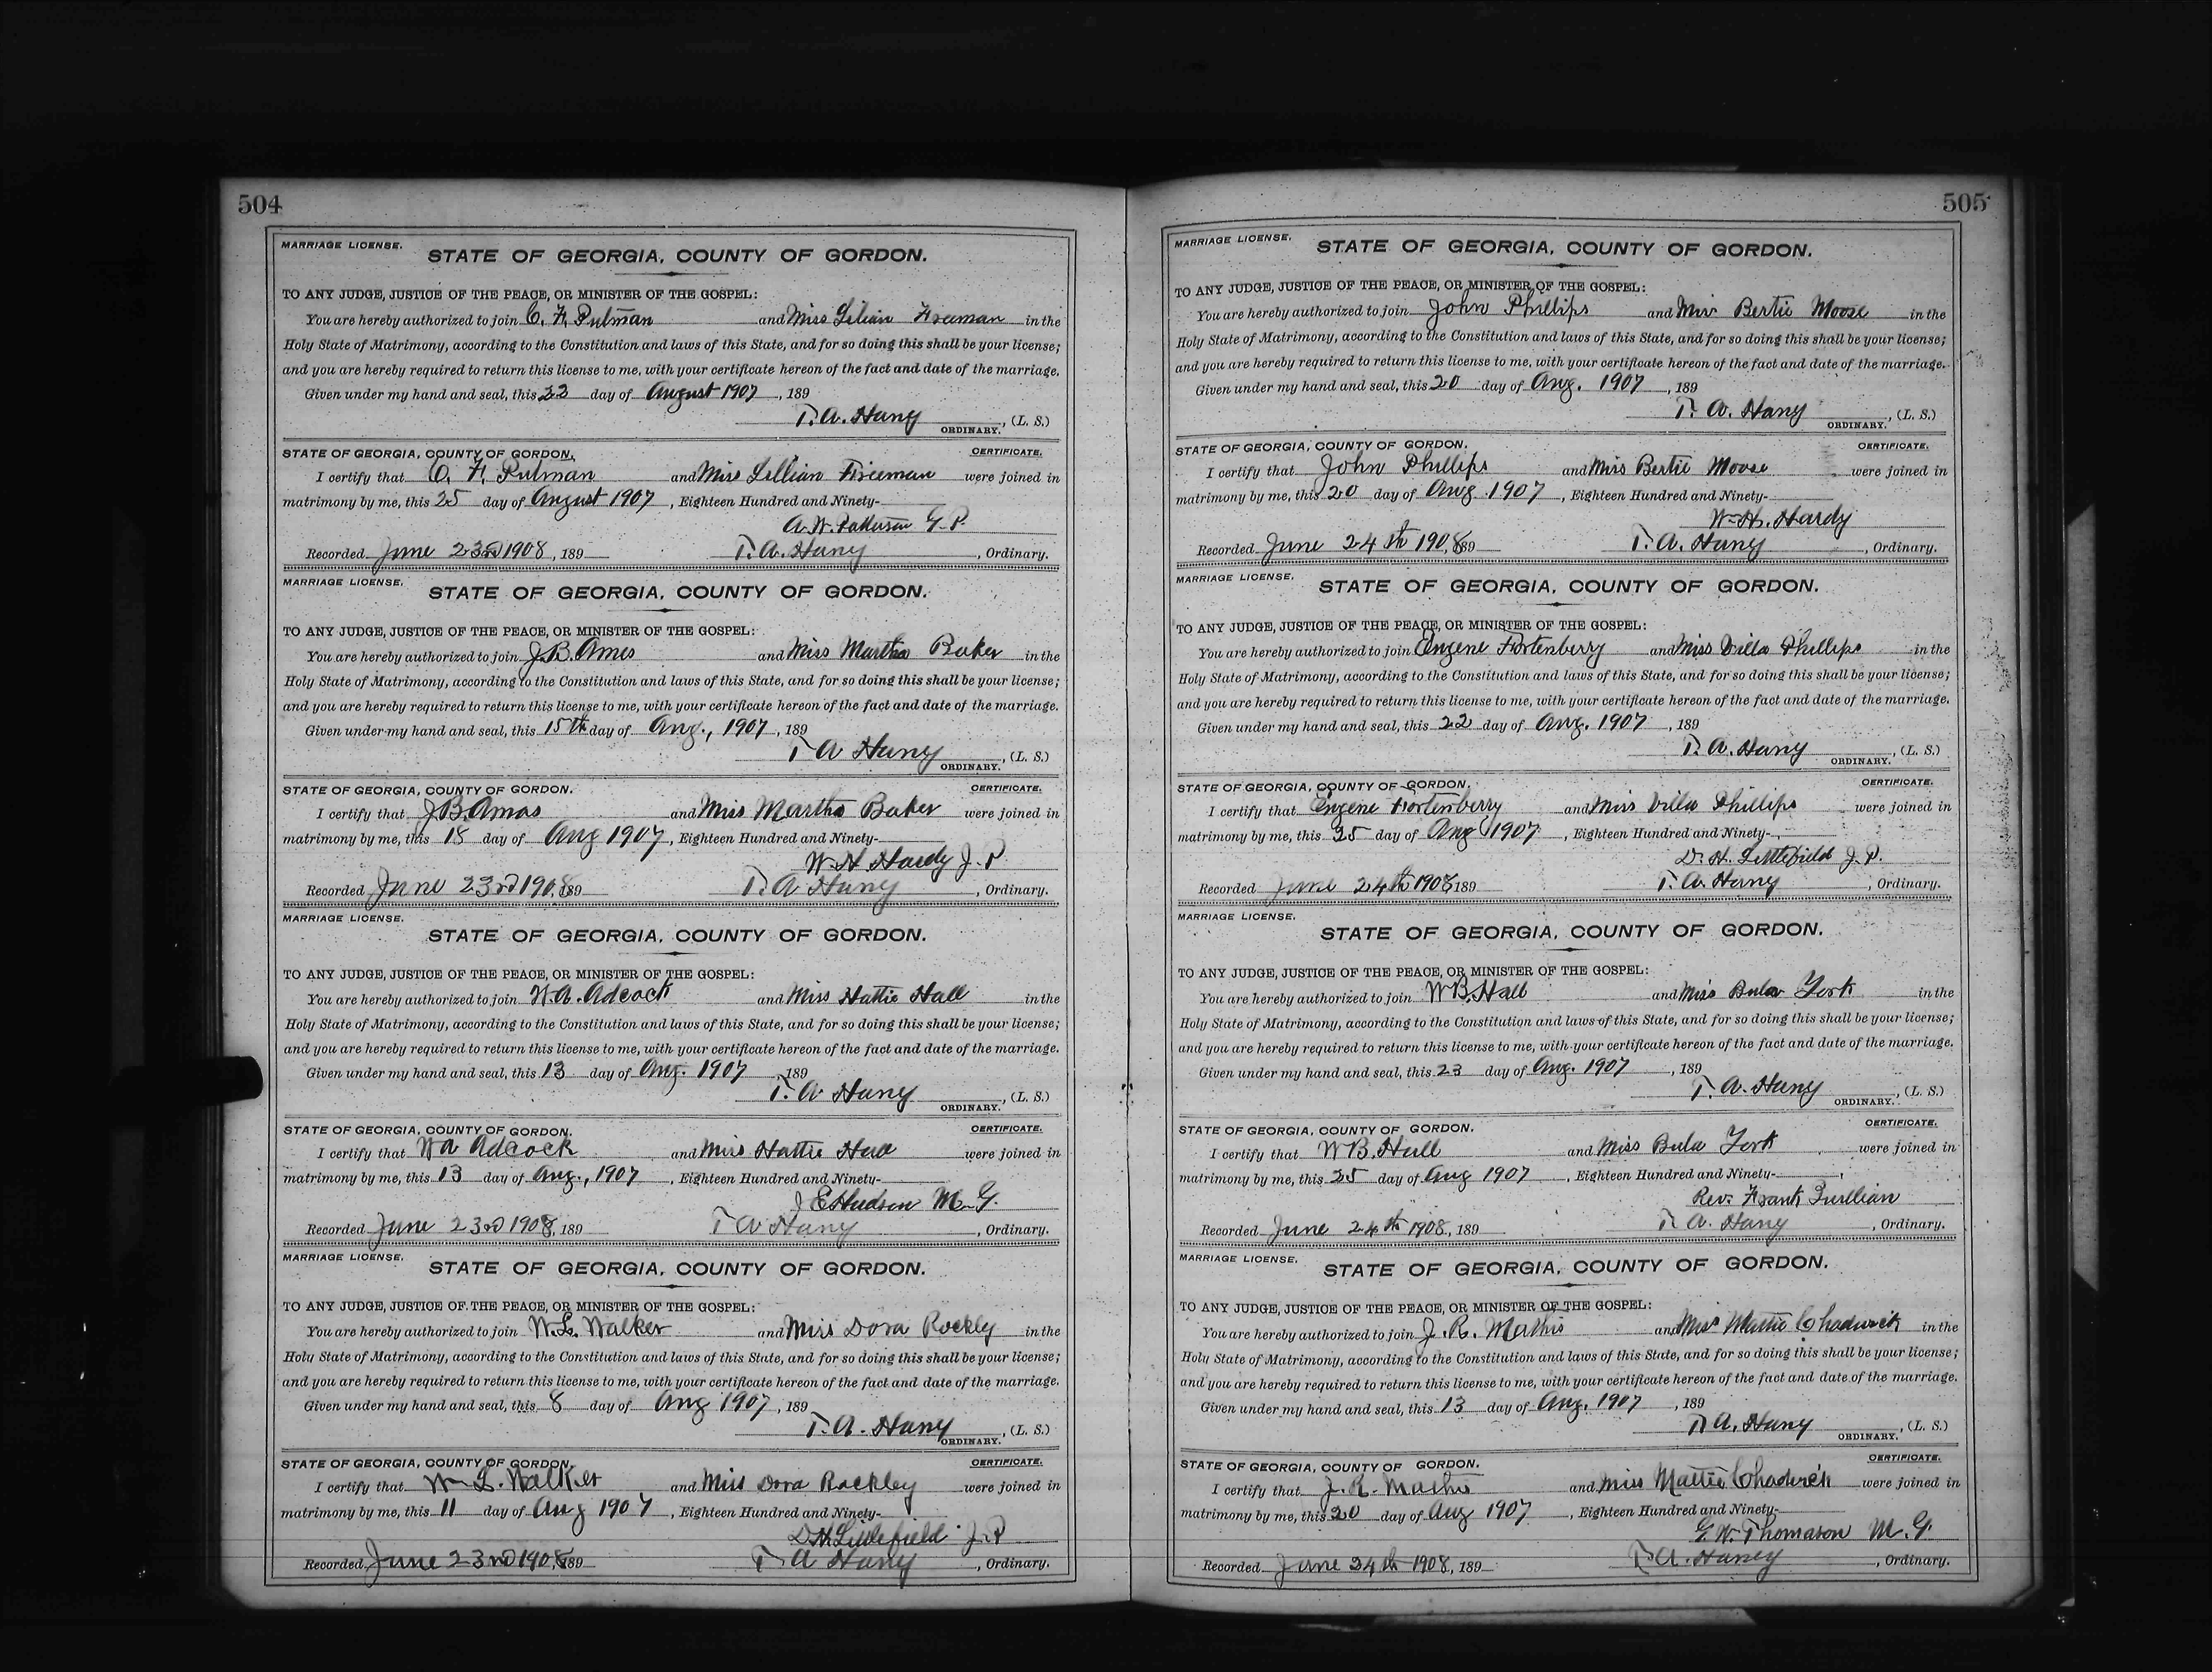 504
MARRIAGE LICENSE.
STATE OF GEORGIA, COUNTY OF GORDON.
TO ANY JUDGE, JUSTICE OF THE PEACE, OR MINISTER OF THE GOSPEL:
You are hereby authorized to join C. F. Pulman and Miss Lilian Freeman in the
Holy State of Matrimony, according to the Constitution and laws of this State, and for so doing this shall be your license;
and you are hereby required to return this license to me, with your certificate hereon of the fact and date of the marriage.
Given under my hand and seal, this 23 day of August 1907, 189
T. A. Haney ORDINARY. (L. S.)
STATE OF GEORGIA, COUNTY OF GORDON. CERTIFICATE.
I certify that C. F. Pulman and Miss Lillian Freeman were joined in
matrimony by me, this 25 day of August 1907, Eighteen Hundred and Ninety-
A. W. Patterson J. P.
Recorded June 23rd 1908, 189 T. A. Haney, Ordinary.
MARRIAGE LICENSE.
STATE OF GEORGIA, COUNTY OF GORDON.
TO ANY JUDGE, JUSTICE OF THE PEACE, OR MINISTER OF THE GOSPEL:
You are hereby authorized to join J. B. Ames and Miss Martha Baker in the
Holy State of Matrimony, according to the Constitution and laws of this State, and for so doing this shall be your license;
and you are hereby required to return this license to me, with your certificate hereon of the fact and date of the marriage.
Given under my hand and seal, this 15th day of Aug., 1907, 189
T A Haney ORDINARY. (L. S.)
STATE OF GEORGIA, COUNTY OF GORDON. CERTIFICATE.
I certify that J. B. Amos and Miss Martha Baker were joined in
matrimony by me, this 18 day of Aug 1907, Eighteen Hundred and Ninety-
W. H. Hardy J. P
Recorded June 23rd 1908, 189 T. A Haney, Ordinary.
MARRIAGE LICENSE.
STATE OF GEORGIA, COUNTY OF GORDON.
TO ANY JUDGE, JUSTICE OF THE PEACE, OR MINISTER OF THE GOSPEL:
You are hereby authorized to join W. A. Adcock and Miss Hattie Hall in the
Holy State of Matrimony, according to the Constitution and laws of this State, and for so doing this shall be your license;
and you are hereby required to return this license to me, with your certificate hereon of the fact and date of the marriage.
Given under my hand and seal, this 13 day of Aug. 1907, 189
T. A Haney ORDINARY. (L. S.)
STATE OF GEORGIA, COUNTY OF GORDON. CERTIFICATE.
I certify that W A Adcock and Miss Hattie Hall were joined in
matrimony by me, this 13 day of Aug., 1907, Eighteen Hundred and Ninety-
J E Hudson M. G.
Recorded June 23rd 1908, 189 T A Haney, Ordinary.
MARRIAGE LICENSE.
STATE OF GEORGIA, COUNTY OF GORDON.
TO ANY JUDGE, JUSTICE OF THE PEACE, OR MINISTER OF THE GOSPEL:
You are hereby authorized to join W. L. Walker and Miss Dora Rockly in the
Holy State of Matrimony, according to the Constitution and laws of this State, and for so doing this shall be your license;
and you are hereby required to return this license to me, with your certificate hereon of the fact and date of the marriage.
Given under my hand and seal, this 8 day of Aug 1907, 189
T. A. Haney ORDINARY. (L. S.)
STATE OF GEORGIA, COUNTY OF GORDON. CERTIFICATE.
I certify that W L. Walker and Miss Dora Rockley were joined in
matrimony by me, this 11 day of Aug 1907, Eighteen Hundred and Ninety-
D. H. Littlefield J. P
Recorded June 23rd 1908, 189 T A Haney, Ordinary.
505
MARRIAGE LICENSE.
STATE OF GEORGIA, COUNTY OF GORDON.
TO ANY JUDGE, JUSTICE OF THE PEACE, OR MINISTER OF THE GOSPEL:
You are hereby authorized to join John Phillips and Miss Bertie Moose in the
Holy State of Matrimony, according to the Constitution and laws of this State, and for so doing this shall be your license;
and you are hereby required to return this license to me, with your certificate hereon of the fact and date of the marriage.
Given under my hand and seal, this 20 day of Aug. 1907, 189
T. A. Haney ORDINARY. (L. S.)
STATE OF GEORGIA, COUNTY OF GORDON. CERTIFICATE.
I certify that John Phillips and Miss Bertie Moose were joined in
matrimony by me, this 20 day of Aug 1907, Eighteen Hundred and Ninety-
W. H. Hardy
Recorded June 24th 1908, 189 T. A. Haney, Ordinary.
MARRIAGE LICENSE.
STATE OF GEORGIA, COUNTY OF GORDON.
TO ANY JUDGE, JUSTICE OF THE PEACE, OR MINISTER OF THE GOSPEL:
You are hereby authorized to join Eugene Fortenberry and Miss Villa Phillips in the
Holy State of Matrimony, according to the Constitution and laws of this State, and for so doing this shall be your license;
and you are hereby required to return this license to me, with your certificate hereon of the fact and date of the marriage.
Given under my hand and seal, this 22 day of Aug. 1907, 189
T. A. Haney ORDINARY. (L. S.)
STATE OF GEORGIA, COUNTY OF GORDON. CERTIFICATE.
I certify that Eugene Fortenberry and Miss Villa Phillips were joined in
matrimony by me, this 25 day of Aug 1907, Eighteen Hundred and Ninety-
D. H. Littlefield J. P.
Recorded June 24th 1908, 189 T. A. Haney, Ordinary.
MARRIAGE LICENSE.
STATE OF GEORGIA, COUNTY OF GORDON.
TO ANY JUDGE, JUSTICE OF THE PEACE, OR MINISTER OF THE GOSPEL:
You are hereby authorized to join W B. Hall and Miss Bula York in the
Holy State of Matrimony, according to the Constitution and laws of this State, and for so doing this shall be your license;
and you are hereby required to return this license to me, with your certificate hereon of the fact and date of the marriage.
Given under my hand and seal, this 23 day of Aug. 1907, 189
T. A. Haney ORDINARY. (L. S.)
STATE OF GEORGIA, COUNTY OF GORDON. CERTIFICATE.
I certify that W B. Hall and Miss Bula York were joined in
matrimony by me, this 25 day of Aug 1907, Eighteen Hundred and Ninety-
Rev. Frank Quillian
Recorded June 24th 1908, 189 T. A. Haney, Ordinary.
MARRIAGE LICENSE.
STATE OF GEORGIA, COUNTY OF GORDON.
TO ANY JUDGE, JUSTICE OF THE PEACE, OR MINISTER OF THE GOSPEL:
You are hereby authorized to join J. R. Mathis and Miss Mattie Chadwick in the
Holy State of Matrimony, according to the Constitution and laws of this State, and for so doing this shall be your license;
and you are hereby required to return this license to me, with your certificate hereon of the fact and date of the marriage.
Given under my hand and seal, this 13 day of Aug. 1907, 189
T. A. Haney ORDINARY. (L. S.)
STATE OF GEORGIA, COUNTY OF GORDON. CERTIFICATE.
I certify that J. R. Mathis and Miss Mattie Chadwick were joined in
matrimony by me, this 20 day of Aug 1907, Eighteen Hundred and Ninety-
G. W. Thomason M. G.
Recorded June 24th 1908, 189 T. A. Haney, Ordinary.